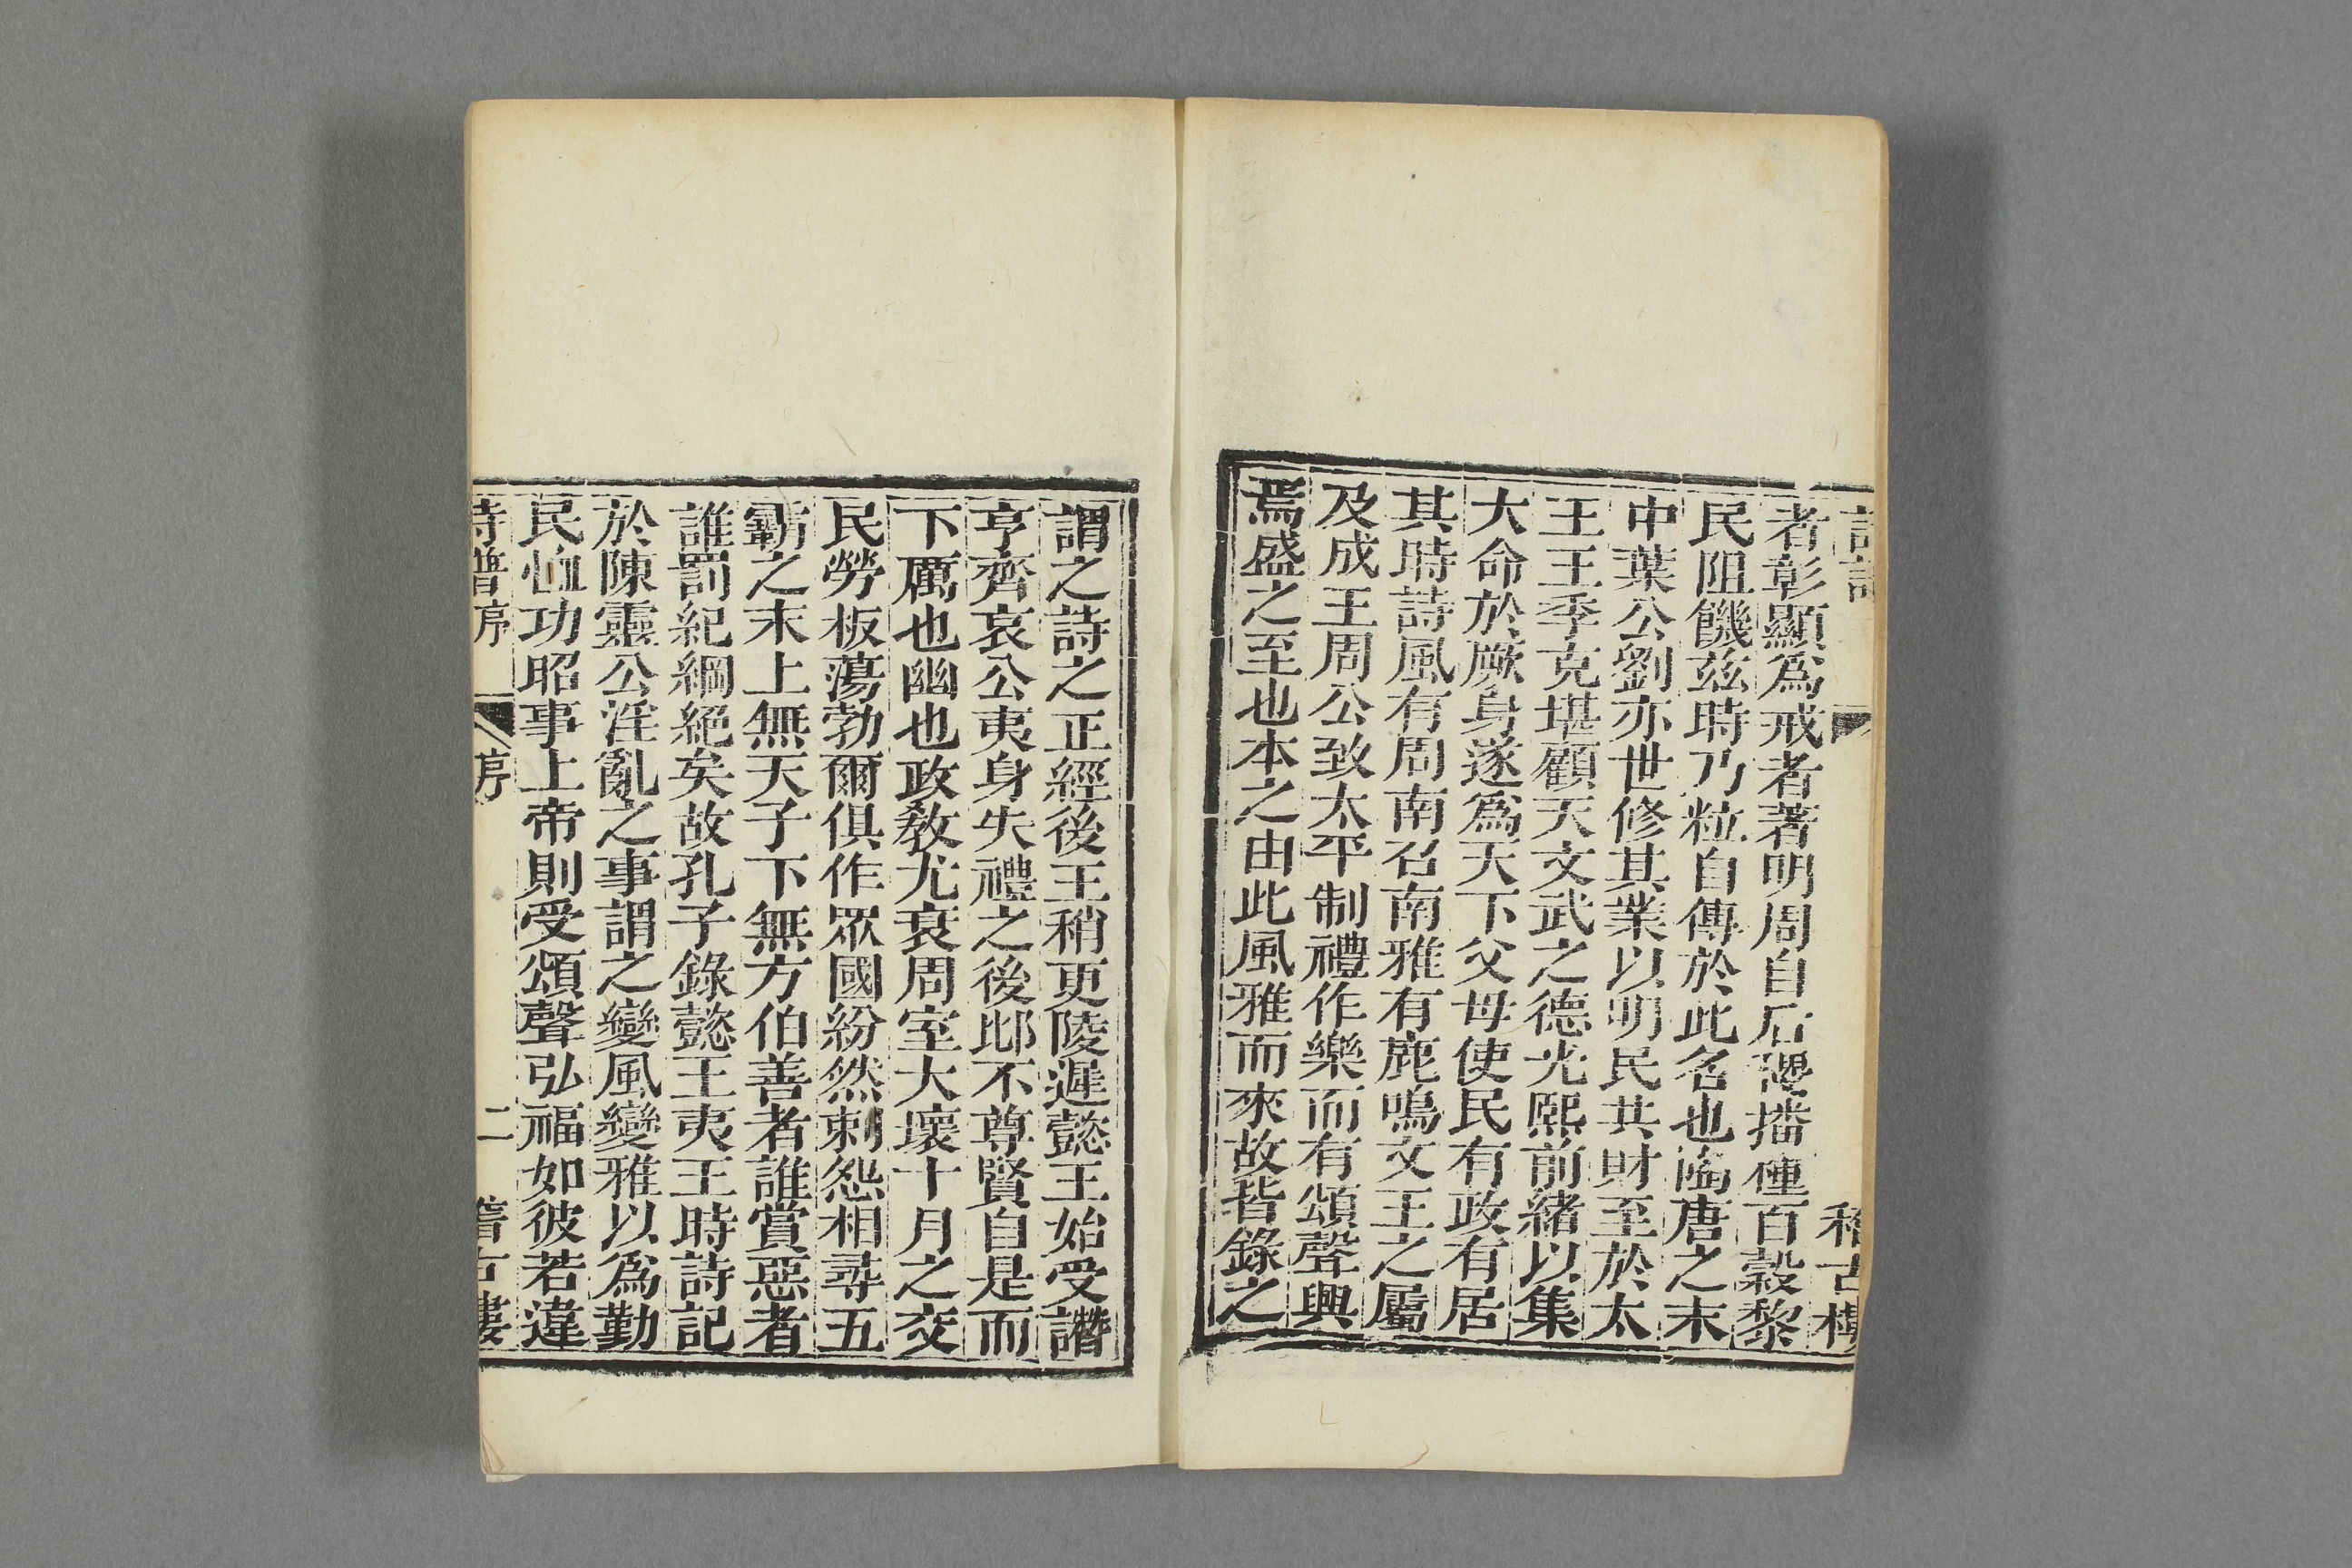 者彰顯爲戒者著明周自后稷播種百穀黎
民阻饑茲時乃粒自傳於此名也陶唐之末
中葉公劉亦世修其業以明民共財至於太
王王季克堪顧天文武之德光熙前緒以集
大命於厥身遂爲天下父母使民有政有居
其時詩風有周南召南雅有鹿鳴文王之屬
及成王周公致太平制禮作樂而有頌聲興
焉盛之至也本之由此風雅而來故皆錄之
謂之詩之正經後王稍更陵遲懿王始受譖
亨齊哀公夷身失禮之後邶不尊賢自是而
下厲也幽也政敎尤衰周室大壞十月之交
民勞板蕩勃爾俱作眾國紛然刺怨相尋五
霸之末上無天子下無方伯善者誰賞惡者
誰罰紀綱絕矣故孔子錄懿王夷王時詩記
於陳靈公淫亂之事謂之變風變雅以爲勤
民恤功昭事上帝則受頌聲弘福如彼若違
詩譜序 序 二 稽古樓